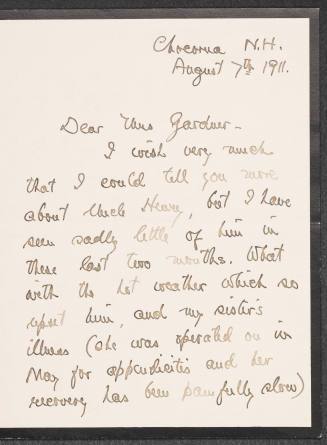 Chocorua N.H.
August 7th 1911.
Dear Mrs Gardner -
I wish very much
that I could tell you more
about Uncle Henry, but I have
seen sadly little of him in
these last two months. What
with the hot weather which so
upset him, and my sister's
illness (she was operated on in
May for appendicitis and her
recovery has been painfully slow)